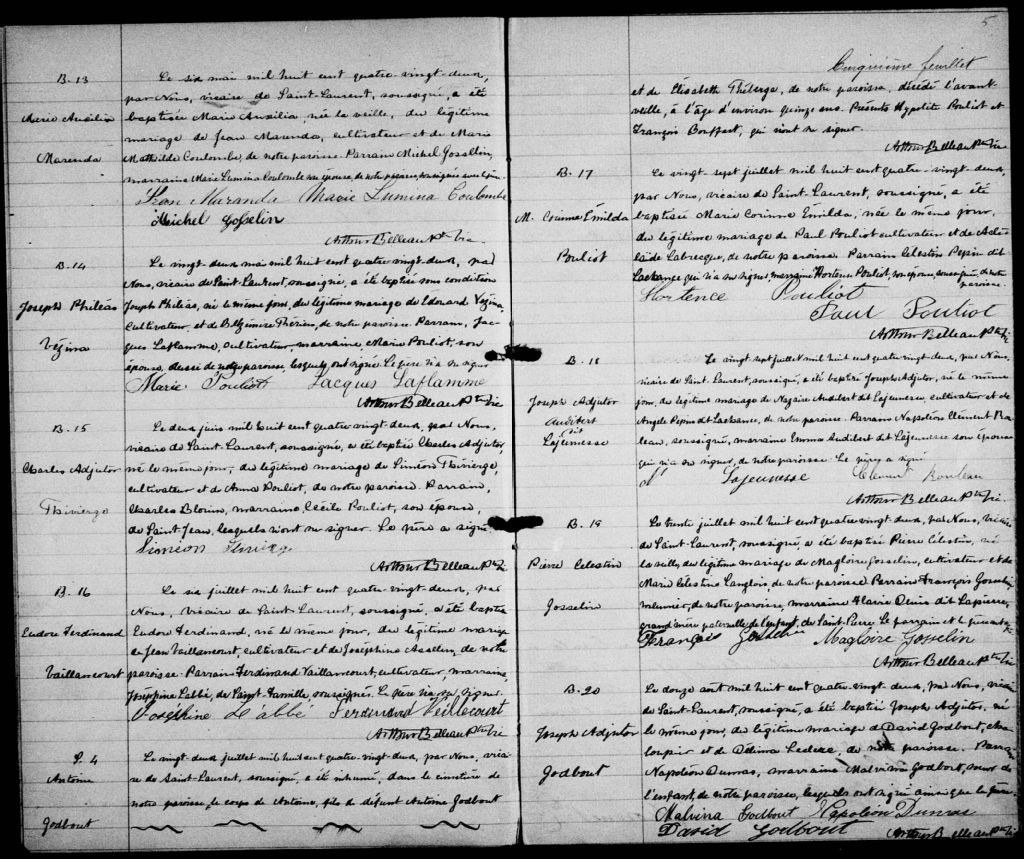 B. 13
Marie Auxilia
Marenda
Le six mai mil huit cent quatre-vingt-deux,
par Nous, vicaire de Saint-Laurent, soussigné, a été
baptisée Marie Auxilia, née la veille, du légitime
mariage de Jean Marenda, cultivateur et de Marie
Mathilde Coulombe, de notre paroisse. Parrain Michel Gosselin,
marraine Marie Lumina Coulombe son épouse, de notre paroisse, soussignés avec
Jean Maranda Marie Lumina Coulombe
Michel Gosselin
Arthur Belleau Ptre Vic.
B. 14
Joseph Philéas
Vézina
Le vingt-deux mai mil huit cent quatre-vingt-deux, par
Nous, vicaire de Saint-Laurent, soussigné, a été baptisé sous condition
Joseph Philéas, né le même jour, du légitime mariage de Edouard Vézina,
cultivateur, et de Belzémire Thérien, de notre paroisse. Parrain, Jac-
ques Laflamme, cultivateur, marraine, Marie Pouliot, son
épouse, aussi de notre paroisse, lesquels ont signé. Le père n'a su signer
Marie Pouliot Jacques Laflamme
Arthur Belleau Ptre Vic
B. 15
Charles Adjutor
Thivierge
Le deux juin mil huit cent quatre-vingt deux, par Nous,
vicaire de Saint-Laurent, soussigné, a été baptisé Charles Adjutor,
né le même jour, du légitime mariage de Siméon Thivierge,
cultivateur et de Anna Pouliot, de notre paroisse. Parrain,
Charles Blouin, marraine, Cécile Pouliot, son épouse,
de Saint Jean, lesquels n'ont su signer. Le père a signé.
Simeon Thivierge
Arthur Belleau Ptre Vic
B. 16
Eudore Ferdinand
Vaillancourt
Le six juillet mil huit cent quatre-vingt-deux, par
Nous, vicaire de Saint-Laurent, soussigné, a été baptisé
Eudore Ferdinand, né le même jour, du légitime mariage
de Jean Vaillancourt, cultivateur et de Joséphine Asselin, de notre
paroisse. Parrain Ferdinand Vaillancourt, cultivateur, marraine,
Joséphine Labbé, de Sainte-Famille, soussignés. Le père n'a su signer
Joséphine L'abbé Ferdinand Veillecourt
Arthur Belleau Ptre Vic
S. 4
Antoine
Godbout
Le vingt deux juillet mil huit cent quatre-vingt-deux, par Nous, vicai-
re de Saint-Laurent, soussigné, a été inhumé, dans le cimetière de
notre paroisse, le corps de Antoine, fils de défunt Antoine Godbout
5
Cinquième feuillet
et de Élisabeth Théberge, de notre paroisse, décédé l'avant-
veille, à l'âge d'environ quinze ans. Présents Hypolite Pouliot et
François Bouffart, qui n'ont su signer.
Arthur Belleau Ptre Vic
B. 17
M. Corinne Émilda
Pouliot
Le vingt sept juillet mil huit cent quatre-vingt-deux,
par Nous, vicaire de Saint-Laurent, soussigné, a été
baptisée Marie Corinne Émilda, née le même jour,
du légitime mariage de Paul Pouliot cultivateur et de Adé-
laïde Labrecque, de notre paroisse. Parrain Célestin Pepin dit
Lachance qui n'a su signer, marraine Hortence Pouliot, son épouse, soussignée, de notre
paroisse.
Hortence Pouliot
Paul Pouliot
Arthur Belleau Ptre Vic
B. 18
Joseph Adjutor
Audibert
dit
Lajeunesse
Le vingt sept juillet mil huit cent quatre-vingt-deux, par Nous,
vicaire de Saint-Laurent, soussigné, a été baptisé Joseph Adjutor, né le même
jour, du légitime mariage de Nazaire Audibert dit Lajeunesse, cultivateur et de
Angèle Pepin dit Lachance, de notre paroisse. Parrain Napoléon Clément Rou-
leau, soussigné, marraine Emma Audibert dit Lajeunesse son épouse
qui n'a su signer, de notre paroisse. Le père a signé
Nre Lajeunesse Clement Rouleau
Arthur Belleau Ptre Vic.
B. 19
Pierre Célestin
Gosselin
Le trente juillet mil huit cent quatre-vingt-deux, par Nous, vicaire
de Saint-Laurent, soussigné, a été baptisé Pierre Célestin, né
la veille, du légitime mariage de Magloire Gosselin, cultivateur et de
Marie Célestine Langlois, de notre paroisse. Parrain François Gosselin
meunier, de notre paroisse, marraine Flavie Denis dit Lapierre,
grand'mère paternelle de l'enfant, de Saint-Pierre. Le parrain et le père ont signé
François Gosselin Magloire Gosselin
Arthur Belleau Ptre Vic
B. 20
Joseph Adjutor
Godbout
Le douze août mil huit cent quatre-vingt-deux, par Nous, vicaire
de Saint-Laurent, soussigné, a été baptisé Joseph Adjutor, né
le même jour, du légitime mariage de David Godbout, cha-
loupier et de Délima Leclerc, de notre paroisse. Parrain
Napoléon Dumas, marraine Malvina Godbout, sœur de
l'enfant, de notre paroisse, lesquels ont signé ainsi que le père.
Malvina Godbout Napoléon Dumas
David Godbout Arthur Belleau Ptre Vic